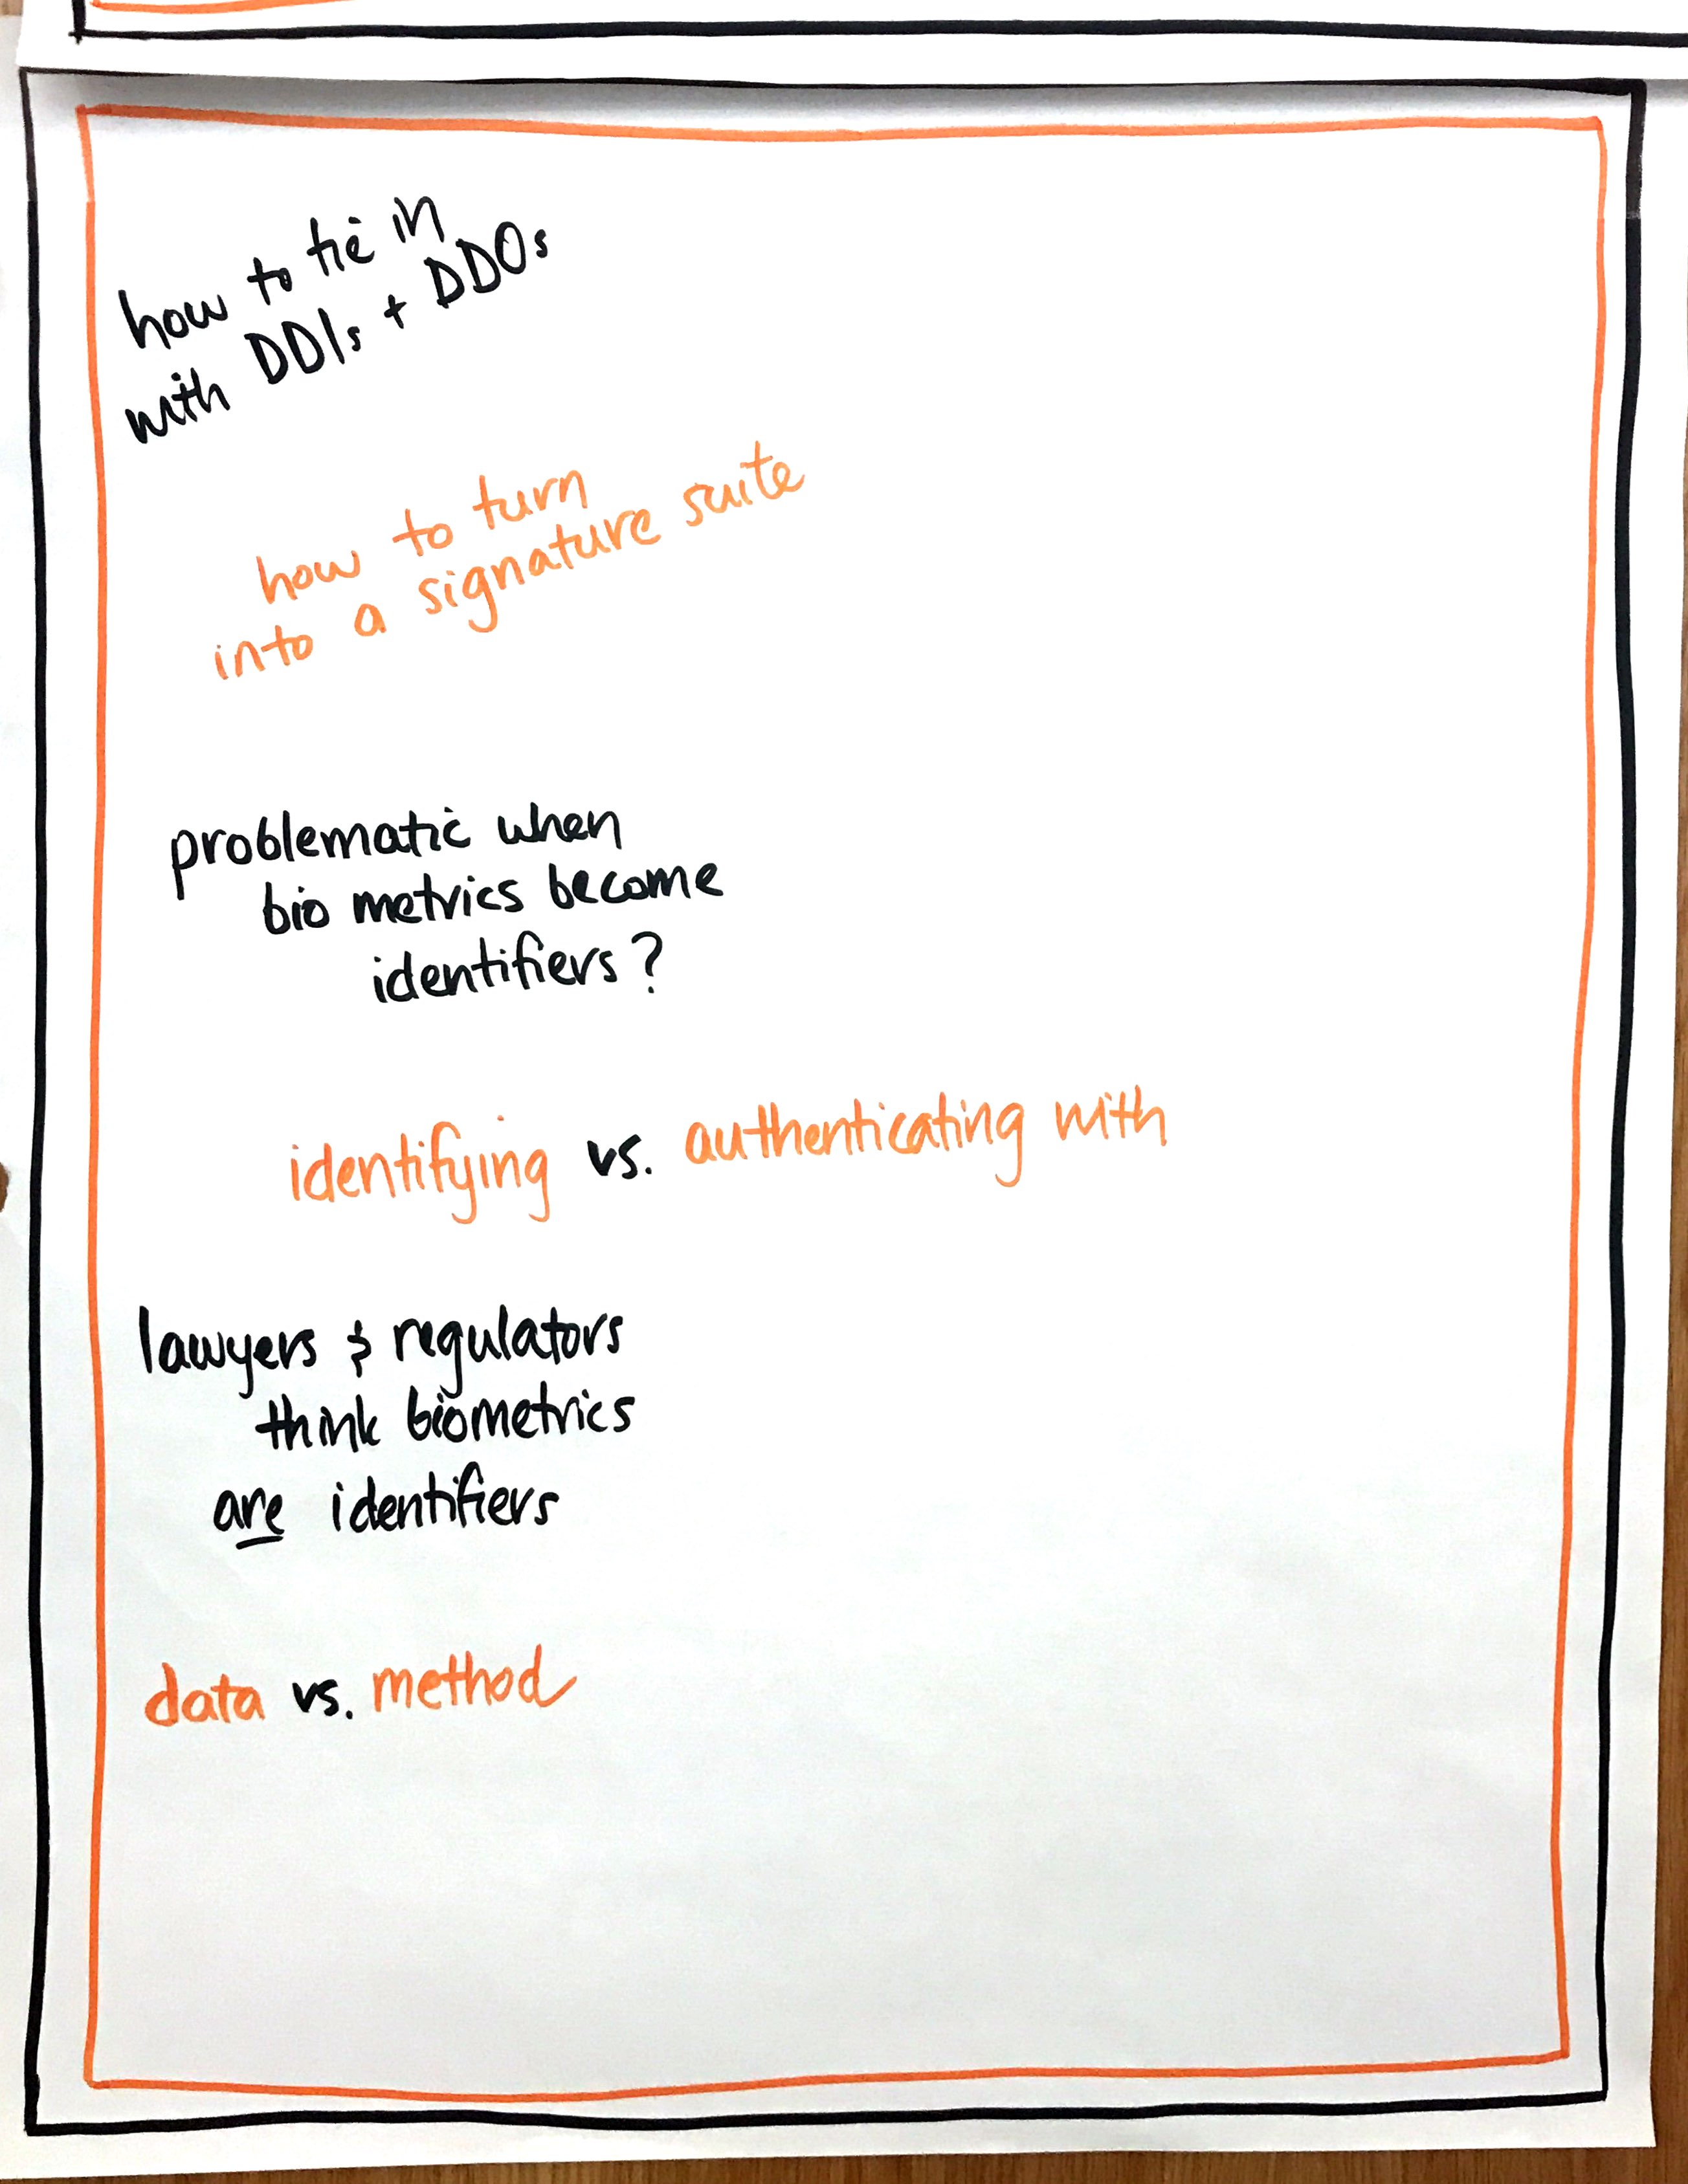 how to tie in
with DDIs + DDOs
how to turn
into a signature suite
problematic when
bio metrics become
identifiers?
identifying vs. authenticating with
lawyers & regulators
think biometrics
are identifiers
data vs. method